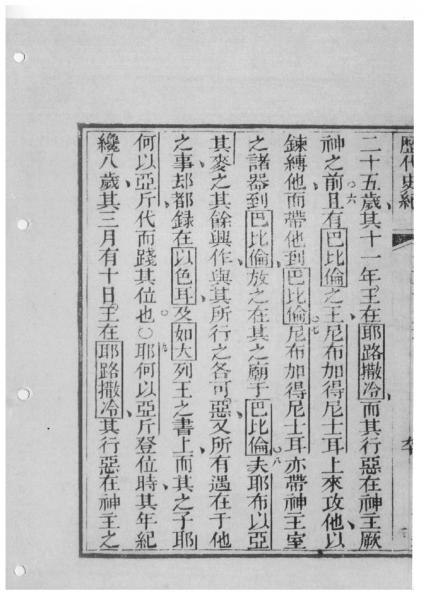 歷代史紀
二十五歲其十一年王在耶路撒冷而其行惡在神王厥
神之前○六且有巴比倫之王尼布加得尼士耳上來攻他以
鍊縛他而帶他到巴比倫○七尼布加得尼士耳亦帶神王室
之諸器到巴比倫放之在其之廟于巴比倫○八夫耶布以亞
其麥之其餘興作與其所行之各可惡又所有遇在于他
之事却都錄在以色耳及如大列王之書上而其之子耶
何以亞斤代而踐其位也○九耶何以亞斤登位時其年紀
纔八歲其三月有十日王在耶路撒冷其行惡在神王之